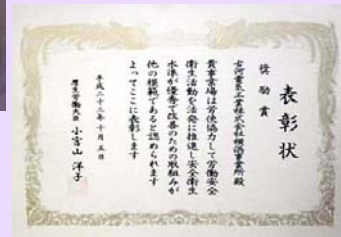 表彰状
奨励賞
古河電気工業株式会社横浜事業所殿
貴事業場は労使協力して労働安全
衛生活動を活発に推進し安全衛生
水準が優秀で改善のための取組みが
他の模範であると認められます
よってここに表彰します
平成二十三年十月五日
厚生労働大臣 小宮山洋子